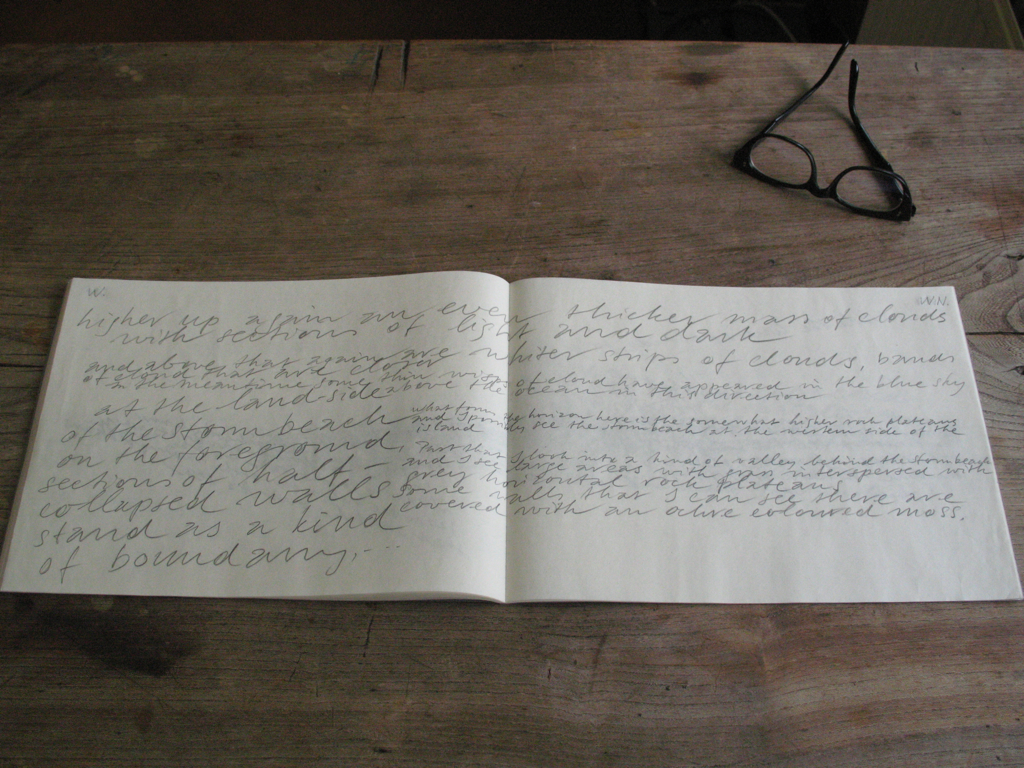 W.
W.N.
higher up again an even thicker mass of clouds
with sections of light and dark
and above that again are whiter strips of clouds, bands
of cloud that are closer
in the meantime some thin wisps of cloud have appeared in the blue sky
above the ocean in this direction
at the land-side
of the storm beach
on the foreground,
sections of half-
collapsed walls
stand as a kind
of boundary,...
what forms the horizon here is the somewhat higher rock plateaus
and I possibly see the storm beach at the western side of the
island
Past that I look into a kind of valley behind the storm beach
and I see large areas with grass interspersed with
grey horizontal rock plateaus
some walls that I can see there are
covered with an olive coloured moss.